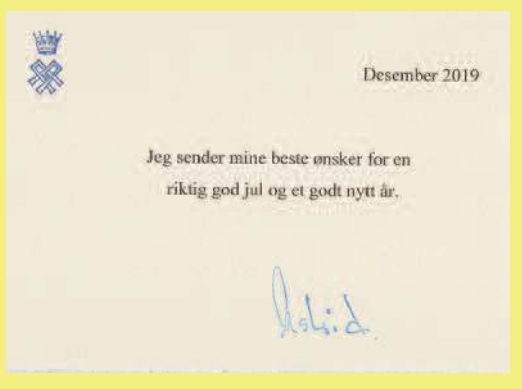 Desember 2019
Jeg sender mine beste ønsker for en
riktig god jul og et godt nytt år.
Astrid